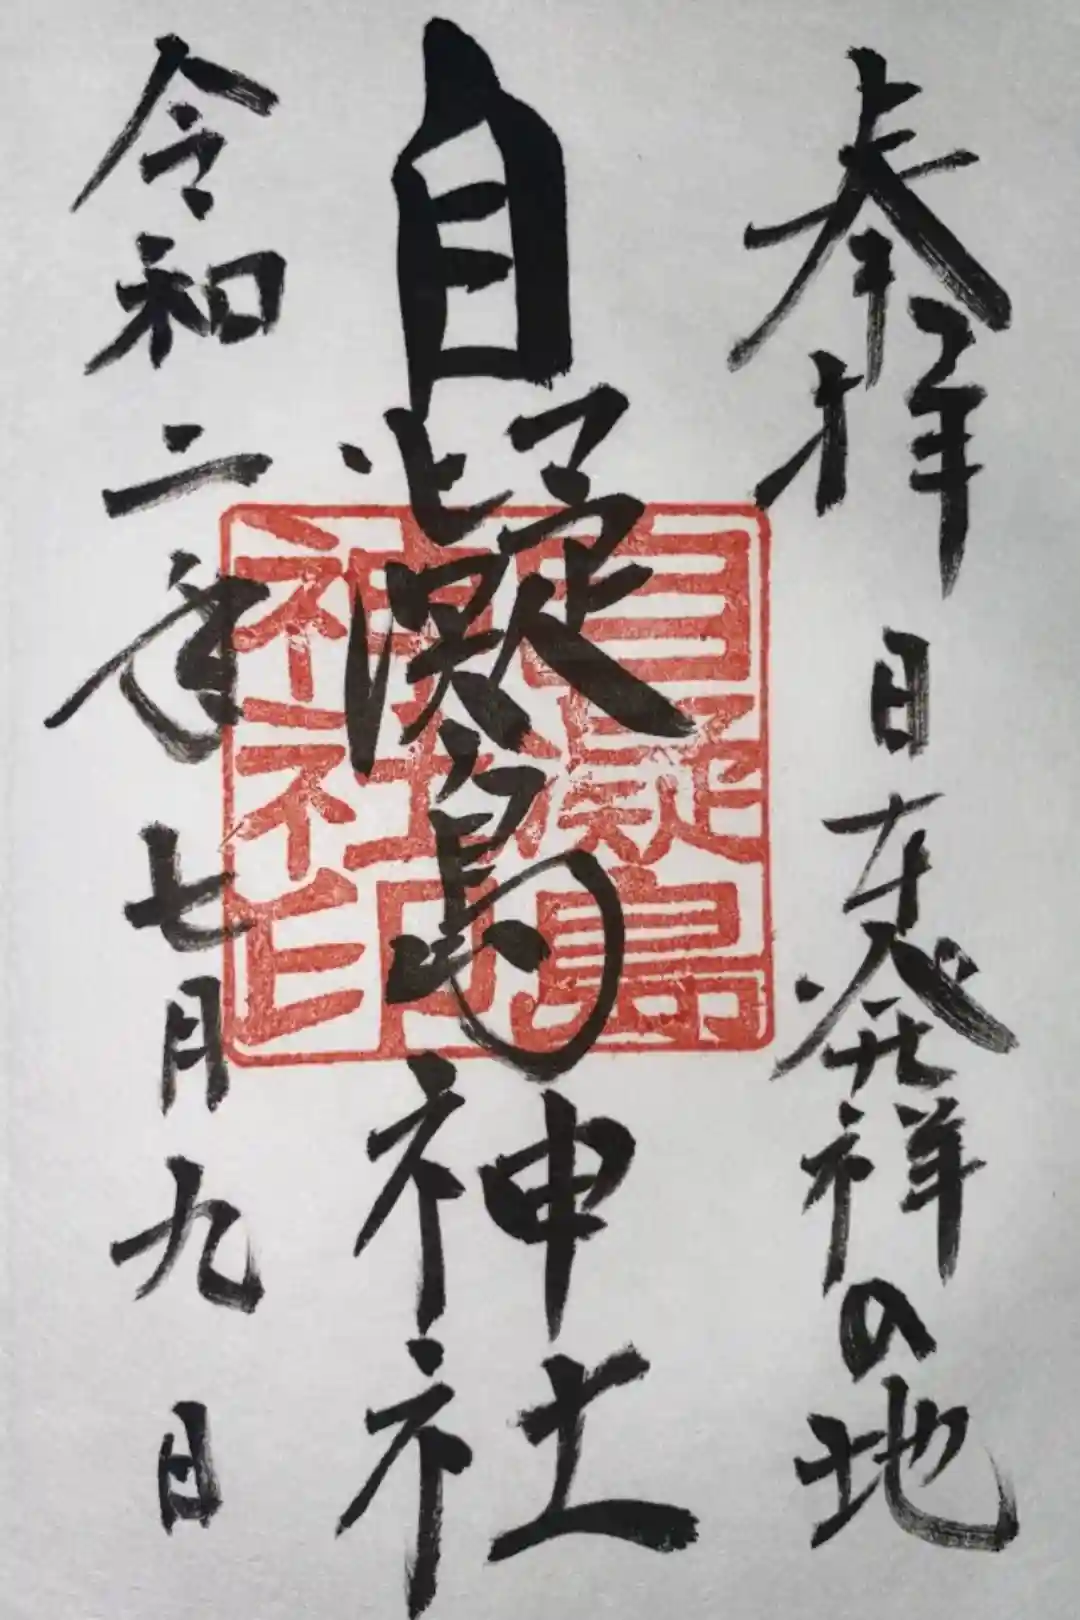 奉拝 日本発祥の地
自凝島神社
自凝島
神社印
令和二年七月九日